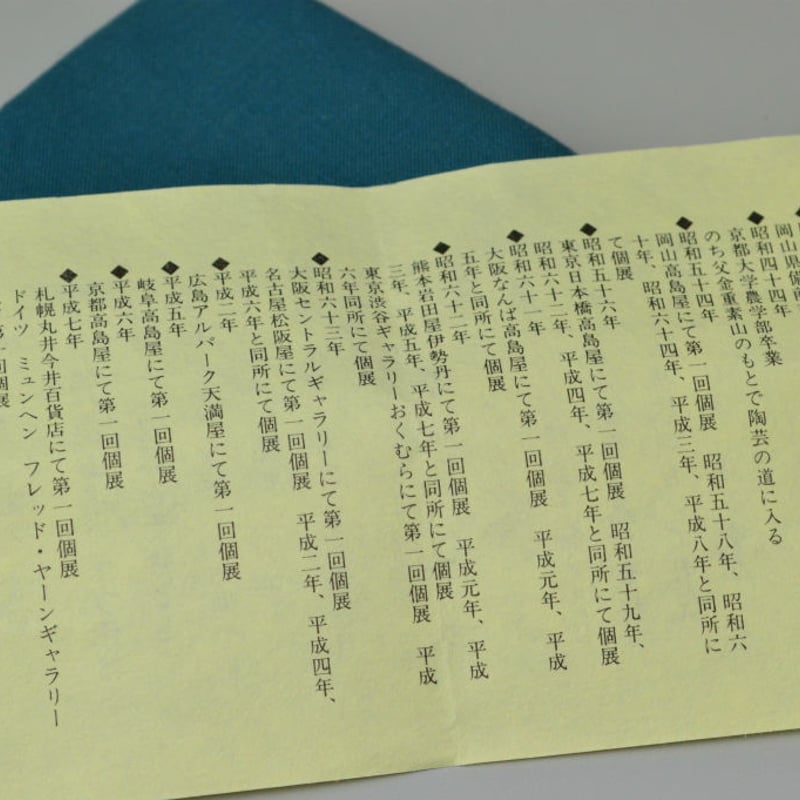 岡山県備前
◆昭和四十四年
京都大学農学部卒業
のち父金重素山のもとで陶芸の道に入る
◆昭和五十四年
岡山高島屋にて第一回個展 昭和五十八年、昭和六
十年、昭和六十四年、平成三年、平成八年と同所に
て個展
◆昭和五十六年
東京日本橋高島屋にて第一回個展 昭和五十九年、
昭和六十二年、平成四年、平成七年と同所にて個展
◆昭和六十一年
大阪なんば高島屋にて第一回個展 平成元年、平成
五年と同所にて個展
◆昭和六十二年
熊本岩田屋伊勢丹にて第一回個展 平成元年、平成
三年、平成五年、平成七年と同所にて個展
東京渋谷ギャラリーおくむらにて第一回個展 平成
六年同所にて個展
◆昭和六十三年
大阪セントラルギャラリーにて第一回個展
名古屋松阪屋にて第一回個展 平成二年、平成四年、
平成六年と同所にて個展
◆平成二年
広島アルパーク天満屋にて第一回個展
◆平成五年
岐阜高島屋にて第一回個展
◆平成六年
京都高島屋にて第一回個展
◆平成七年
札幌丸井今井百貨店にて第一回個展
ドイツ ミュンヘン フレッド・ヤーンギャラリー
第一回個展